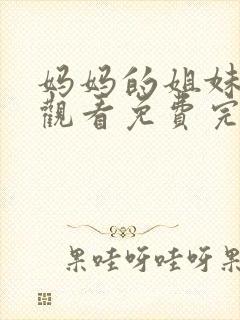 妈妈的姐妹
觀看免費完
果哇呀哇呀果